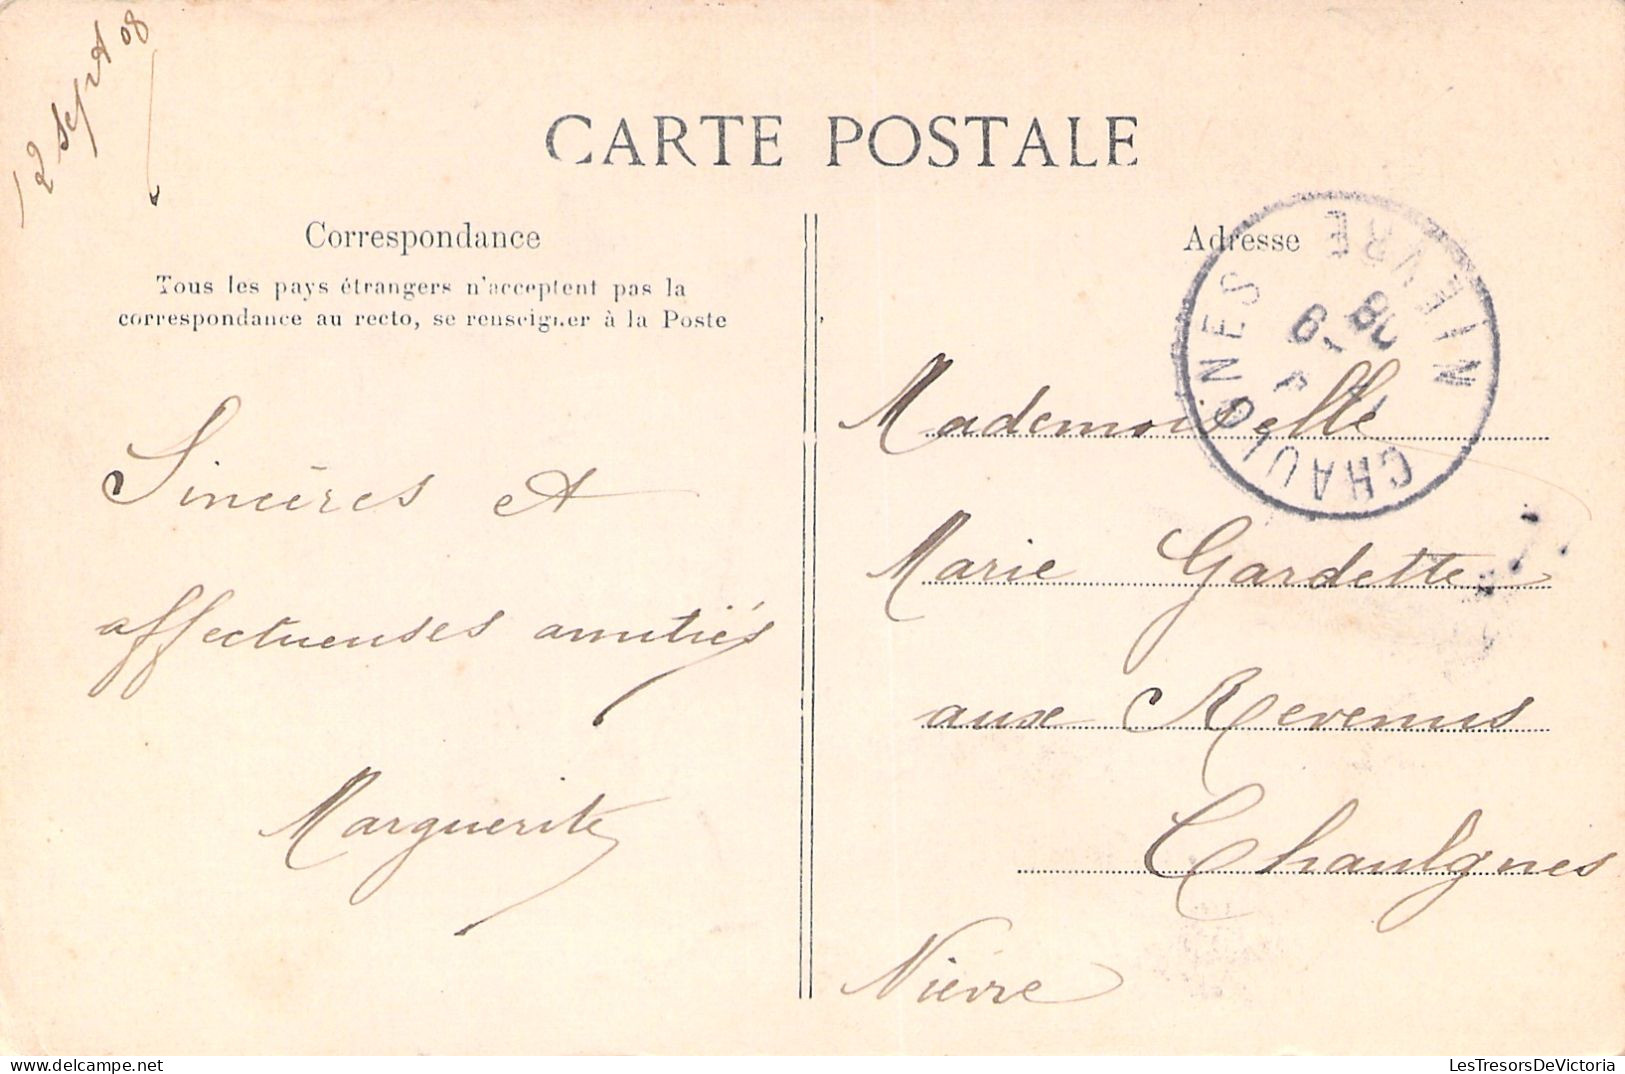 12 sept 08
CARTE POSTALE
Correspondance
Tous les pays étrangers n'acceptent pas la
correspondance au recto, se renseigner à la Poste
Sincères et
affectueuses amitiés
Marguerite
Adresse
CHAULGNES NIEVRE
9 08
Mademoiselle
Marie Gardette
aux Revenus
Chaulgnes
Nièvre
LesTresorsDeVictoria